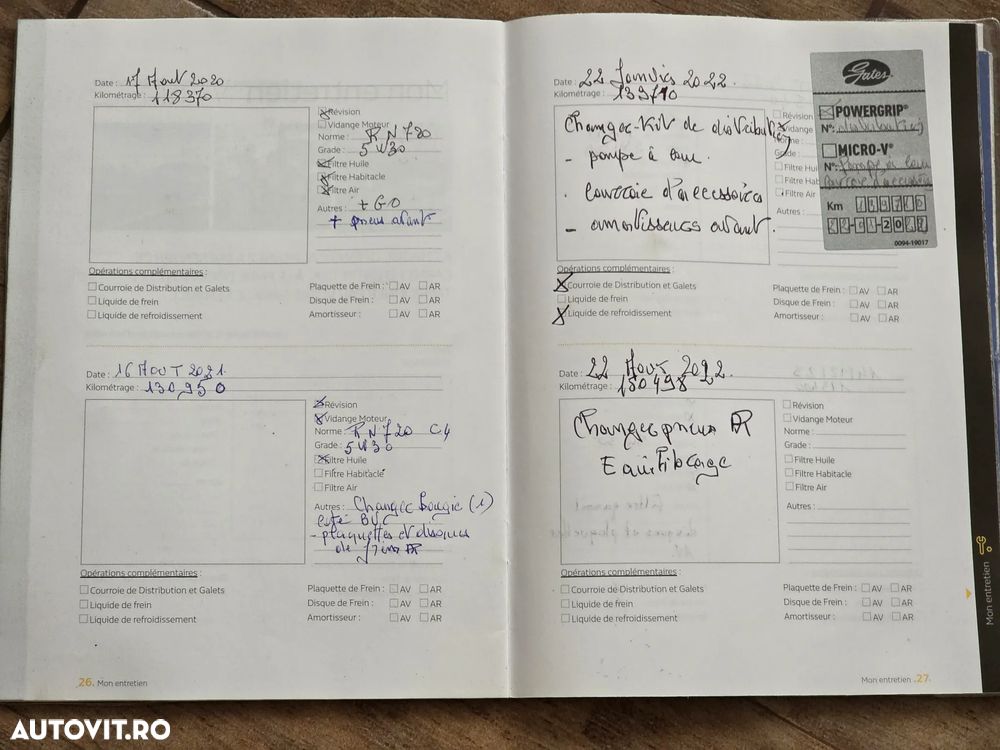 Date : 17 Aout 2020
Kilométrage : 118370
Révision
Vidange Moteur
Norme : RN 720
Grade : 5W30
Filtre Huile
Filtre Habitacle
Filtre Air
Autres : + GO
+ pneus avant
Opérations complémentaires :
Courroie de Distribution et Galets
Liquide de frein
Liquide de refroidissement
Plaquette de Frein : AV AR
Disque de Frein : AV AR
Amortisseur : AV AR
Date : 16 AOUT 2021
Kilométrage : 130950
Révision
Vidange Moteur
Norme : RN 720 C4
Grade : 5W30
Filtre Huile
Filtre Habitacle
Filtre Air
Autres : Changer bougie (1)
- plaquettes et disques
de frein AR
Opérations complémentaires :
Courroie de Distribution et Galets
Liquide de frein
Liquide de refroidissement
Plaquette de Frein : AV AR
Disque de Frein : AV AR
Amortisseur : AV AR
26. Mon entretien
Date : 22 Janvier 2022.
Kilométrage : 139710
Changer Kit de distribution
- pompe à eau.
- courroie d'accessoires
- amortisseurs avant.
Révision
Vidange
Norme
Grade :
Filtre Huil
Filtre Hab
Filtre Air
Autres :
Gates
POWERGRIP®
N°: distribution
MICRO-V®
N°: Pompe a eau
courroie d'accessoire
Km 139710
22-01-2022
0094-19017
Opérations complémentaires :
Courroie de Distribution et Galets
Liquide de frein
Liquide de refroidissement
Plaquette de Frein : AV AR
Disque de Frein : AV AR
Amortisseur : AV AR
Date : 22 AOUT 2022.
Kilométrage : 150498
Changer pneus AR
Equilibrage
Révision
Vidange Moteur
Norme :
Grade :
Filtre Huile
Filtre Habitacle
Filtre Air
Autres :
Opérations complémentaires :
Courroie de Distribution et Galets
Liquide de frein
Liquide de refroidissement
Plaquette de Frein : AV AR
Disque de Frein : AV AR
Amortisseur : AV AR
Mon entretien
Mon entretien .27.
AUTOVIT.RO